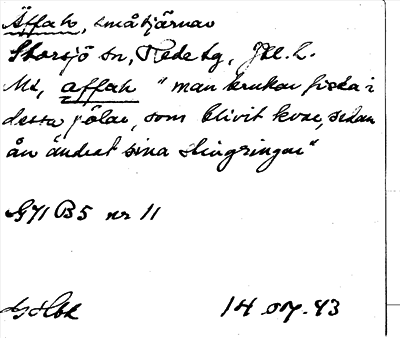 Äffah, småtjärnar
Storsjö sn, Hede tg, Jtl. L.
Ms, affah "man brukar fiska i
dessa pölar, som blivit kvar, sedan
ån ändrat sina slingringar"
G 71 B 5 nr 11
14 07.43